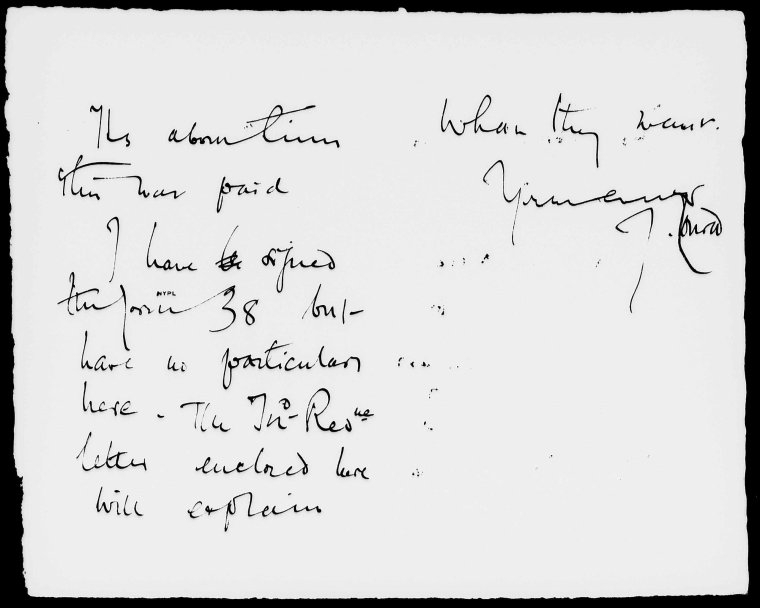 Its about time
this was paid
I have signed
the form 38 but
NYPL
have no particulars
here. The Inᵈ Revᵘᵉ
letter enclosed here
will explain
what they want.
Yours ever
J. Conrad